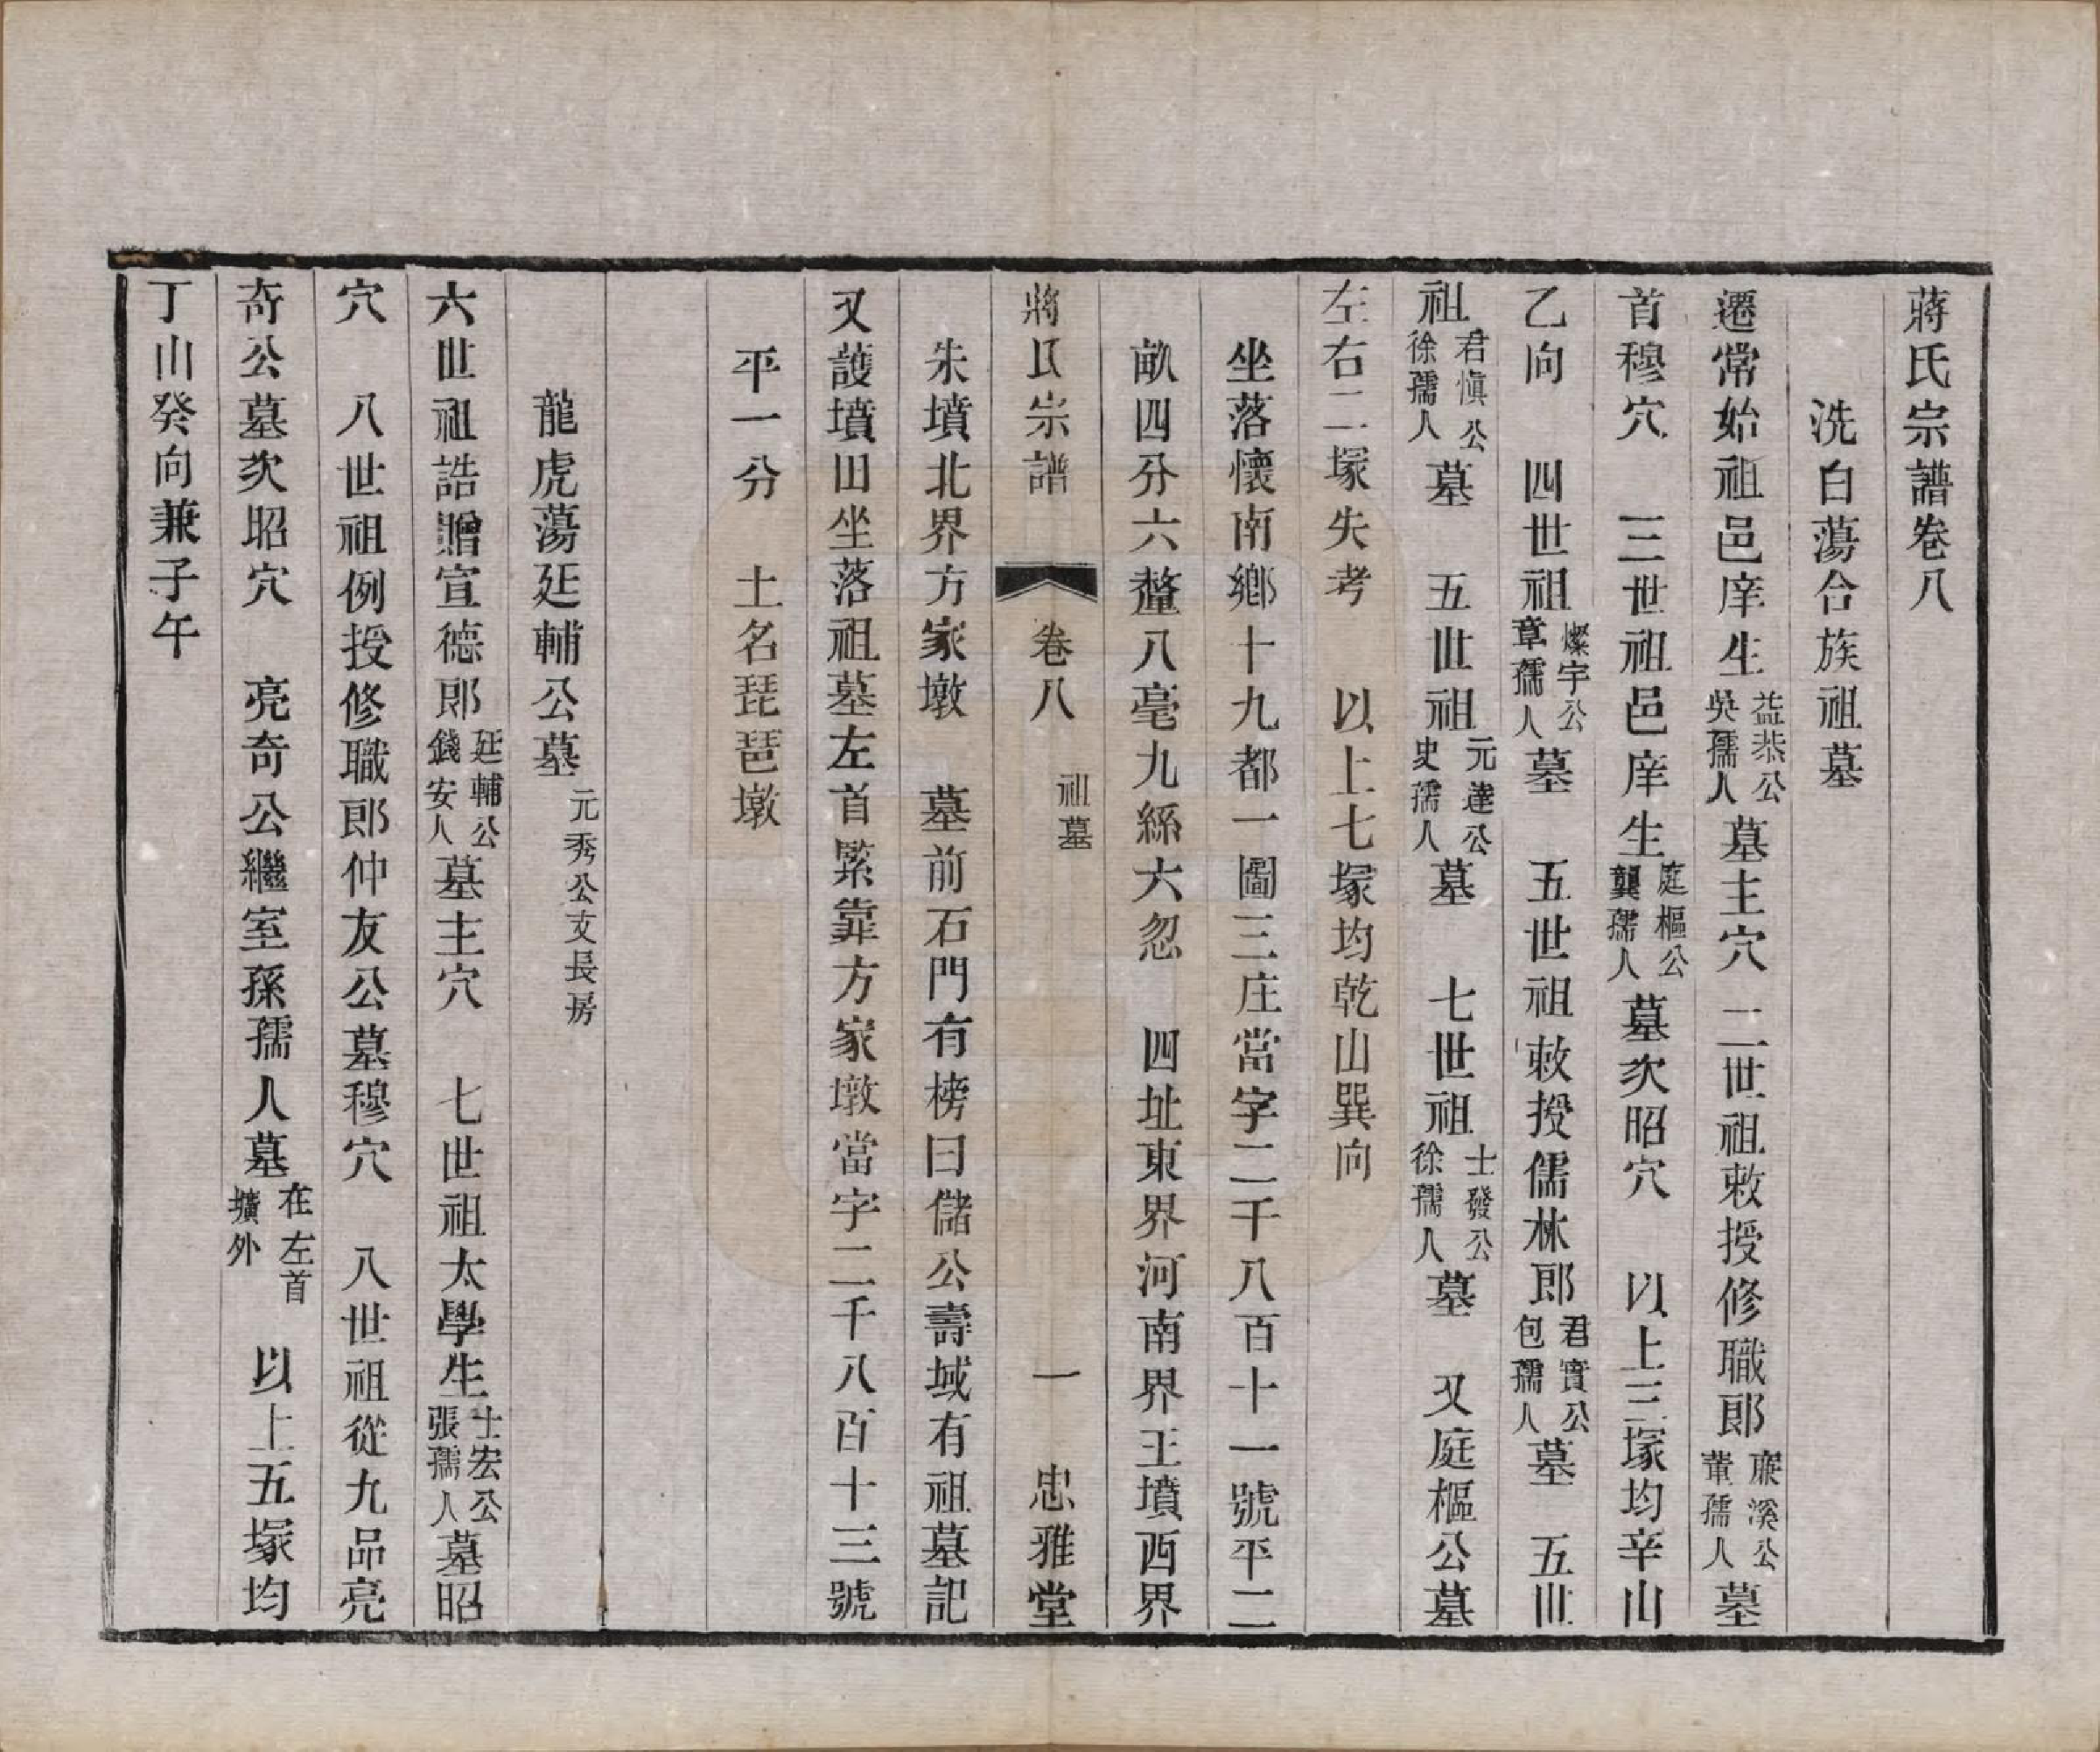 蔣氏宗譜卷八
洗白蕩合族祖墓
遷常始祖邑庠生益恭公吳孺人墓主穴 二世祖敕授修職郎廉溪公董孺人墓
首穆穴 三世祖邑庠生庭樞公龔孺人墓次昭穴 以上三塚均辛山
乙向 四世祖燦宇公章孺人墓 五世祖敕授儒林郎君實公包孺人墓 五世
祖君愼公徐孺人墓 五世祖元達公史孺人墓 七世祖士發公徐孺人墓 又庭樞公墓
左右二塚失考 以上七塚均乾山巽向
坐落懷南鄉十九都一圖三庄當字二千八百十一號平二
畝四分六釐八毫九絲六忽 四址東界河南界王墳西界
蔣氏宗譜 卷八 祖墓 一 忠雅堂
朱墳北界方家墩 墓前石門有榜曰儲公壽域有祖墓記
又護墳田坐落祖墓左首緊靠方家墩當字二千八百十三號
平一分 土名琵琶墩
龍虎蕩廷輔公墓元秀公支長房
六世祖誥贈宣德郎廷輔公錢安人墓主穴 七世祖太學生士宏公張孺人墓昭
穴 八世祖例授修職郎仲友公墓穆穴 八世祖從九品亮
奇公墓次昭穴 亮奇公繼室孫孺人墓在左首壙外 以上五塚均
丁山癸向兼子午